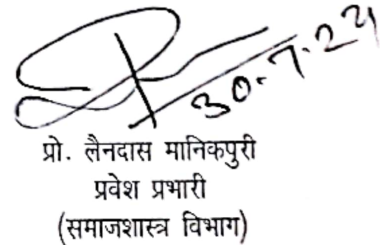 30-7-24
प्रो. लैनदास मानिकपुरी
प्रवेश प्रभारी
(समाजशास्त्र विभाग)